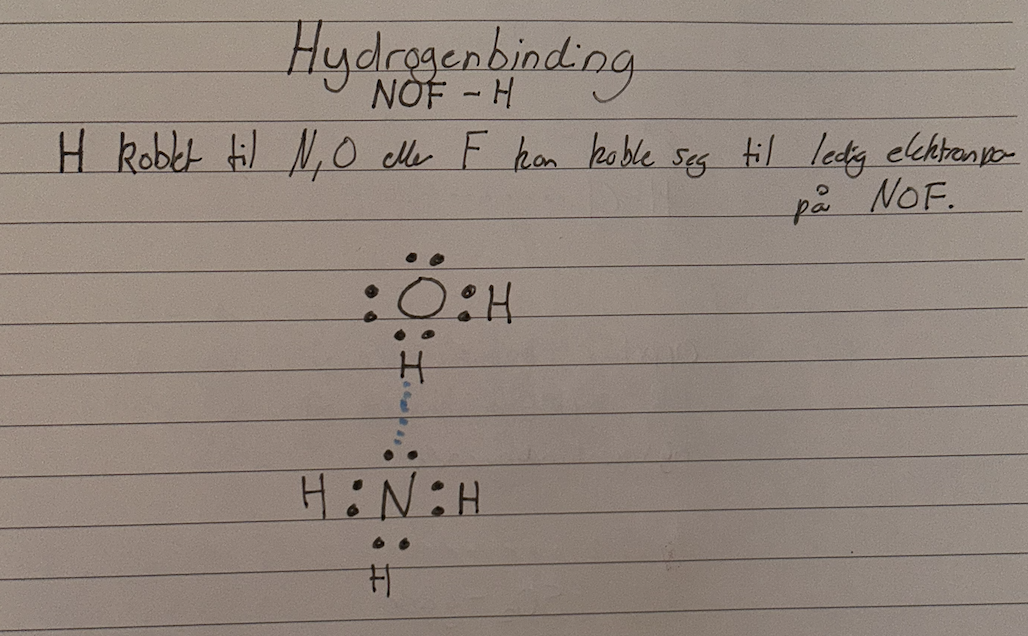 Hydrogenbinding
NOF - H
H koblet til N, O eller F kan koble seg til ledig elektronpar
på NOF.
O H
H
H N H
H